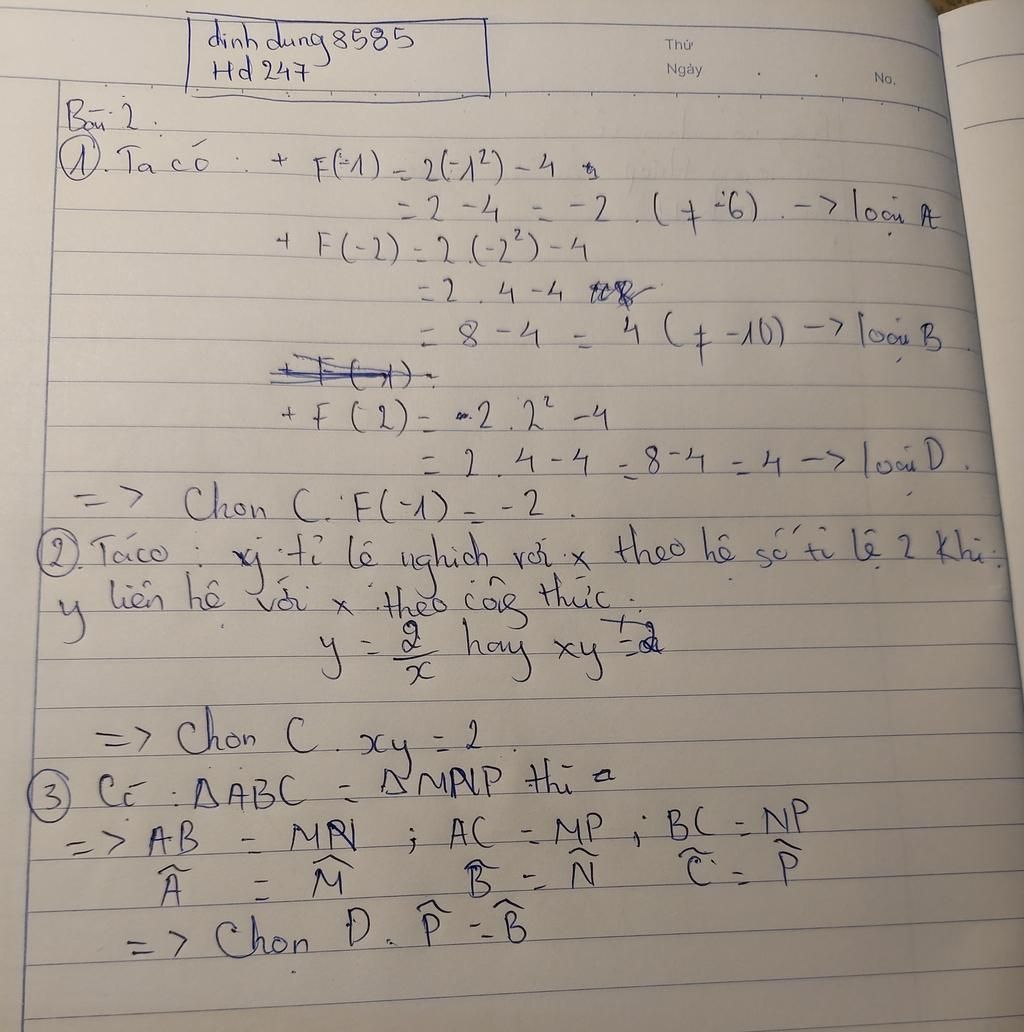 dinh dung 8585
Hd 247
Thứ
Ngày
No.
Bài 2.
① Ta có : + F(-1) = 2(-1²) - 4
= 2 - 4 = -2 . (≠ -6) . -> loại A
+ F(-2) = 2.(-2²) - 4
= 2 . 4 - 4
= 8 - 4 = 4 (≠ -10) -> loại B
+ F(2) = 2 . 2² - 4
= 2 . 4 - 4 = 8 - 4 = 4 -> loại D.
=> Chọn C. F(-1) = -2 .
② Ta có : y tỉ lệ nghịch với x theo hệ số tỉ lệ 2 khi :
y liên hệ với x theo công thức :
y = 2/x hay xy = 2
=> Chọn C . xy = 2 .
③ Có : ΔABC = ΔMNP thì
=> AB = MN ; AC = MP ; BC = NP
Â = M̂ B̂ = N̂ Ĉ = P̂
=> Chọn D . P̂ = B̂